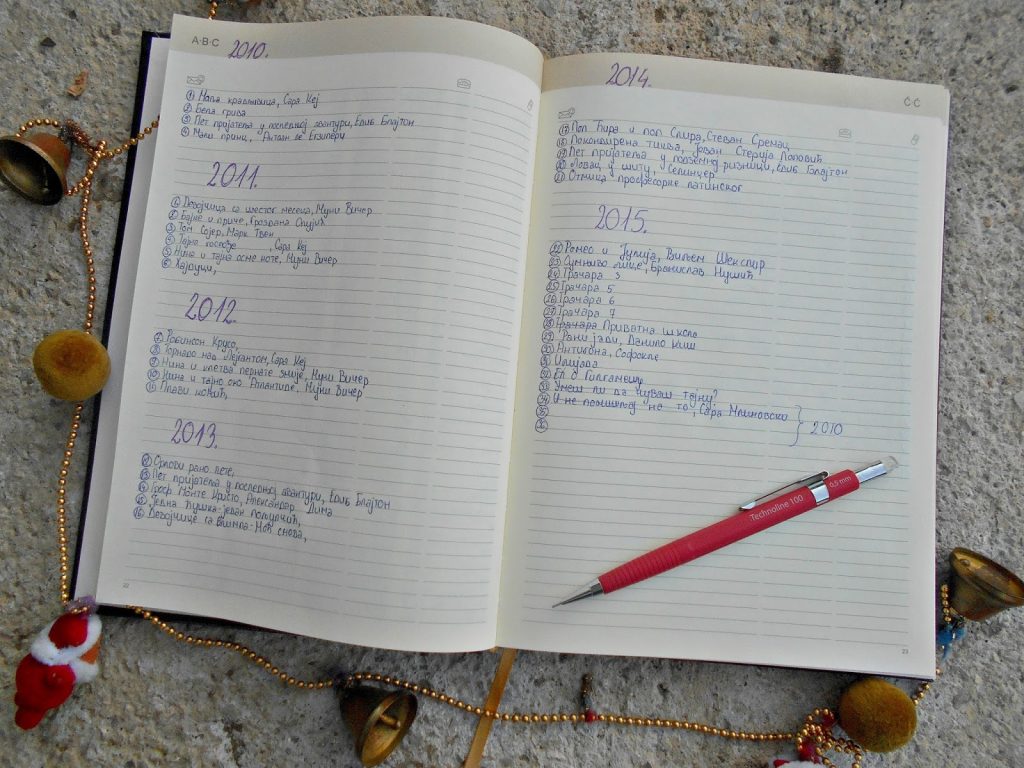 A·B·C
2010.
① Мала крављивица, Сара Кеј
② Бела грива
③ Пет пријатеља у последњој авантури, Енид Блајтон
④ Мали принц, Антоан де Егзипери
2011.
① Девојчица са шестог месеца, Муни Вичер
② Бајке и приче, Гроздана Олујић
③ Том Сојер, Марк Твен
④ Тајна косаође , Сара Кеј
⑤ Нина и тајна осме ноте, Муни Вичер
⑥ Хајдуци,
2012.
⑦ Робинсон Крусо,
⑧ Торнадо над Сара Кеј
⑨ Нина и клетва пернате змије, Муни Вичер
⑩ Нина и тајно око Атлантиде, Муни Вичер
⑪ Плави
2013.
⑫ Орлови рано лете,
⑬ Пет пријатеља у последњој авантури, Енид Блајтон
⑭ Гроф Монте Кристо, Александар Дима
⑮ Једна ћушка-један пољупчић,
⑯ Девојчице са Моћ снова,
22
2014.
Ć·Č
⑰ Поп Ћира и поп Спира, Стеван Сремац
⑱ Покондирена тиква, Јован Стерија Поповић
⑲ Пет пријатеља у подземној ризници, Енид Блајтон
⑳ Ловац у житу, Селинџер
㉑ Отмица професорке латинског
2015.
㉒ Ромео и Јулија, Виљем Шекспир
㉓ Сумњиво лице, Бранислав Нушић
㉔ Трачара 3
㉕ Трачара 5
㉖ Трачара 6
㉗ Трачара 7
㉘ Трачара Приватна школа
㉙ Рани јади, Данило Киш
㉚ Антигона, Софокле
㉛ Илијада
㉜ Еп о Гилгамешу
㉝ Умеш ли да чуваш тајну?
㉞ И не помишљај на то, Сара Млиновски
㉟ 2010
㊱
Technoline 100
0,5 mm
23